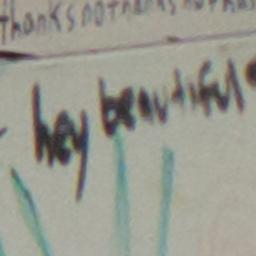 thanksnothanksnothan
hey beautiful